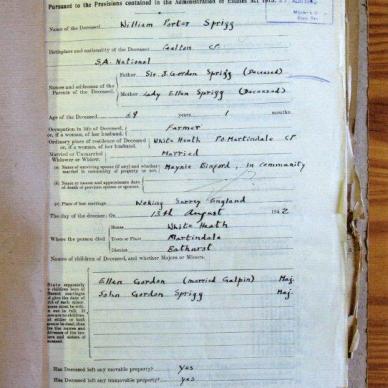 Pursuant to the Provisions contained in the Administration of Estates Act 1913.
Name of the Deceased William Porter Sprigg
Birthplace and nationality of the Deceased CP
S.A. National
Names and addresses of the Parents of the Deceased
Father, Sir J. Gordon Sprigg (Deceased)
Mother Lady Ellen Sprigg (Deceased)
Age of the Deceased 69 years 1 months.
Occupation in life of Deceased Farmer
or, if a woman, of her husband.
Ordinary place of residence of Deceased White Heath P.O. Martindale CP
or, if a woman, of her husband.
Married or Unmarried Married
Widower or Widow.
(a) Name of surviving spouse (if any) and whether married in community of property or not. Binford, in Community
(b) Name or names and approximate date of death of previous spouse or spouses.
(c) Place of her marriage Woking Surrey England
The day of the decease: On 13th August 1942
Where the person died
House White Heath
Town or Place Martindale
District Bathurst
Names of children of Deceased, and whether Majors or Minors.
Ellen Gordon (married Galpin) Maj.
John Gordon Sprigg Maj.
Has Deceased left any movable property? Yes
Has Deceased left any immovable property? Yes